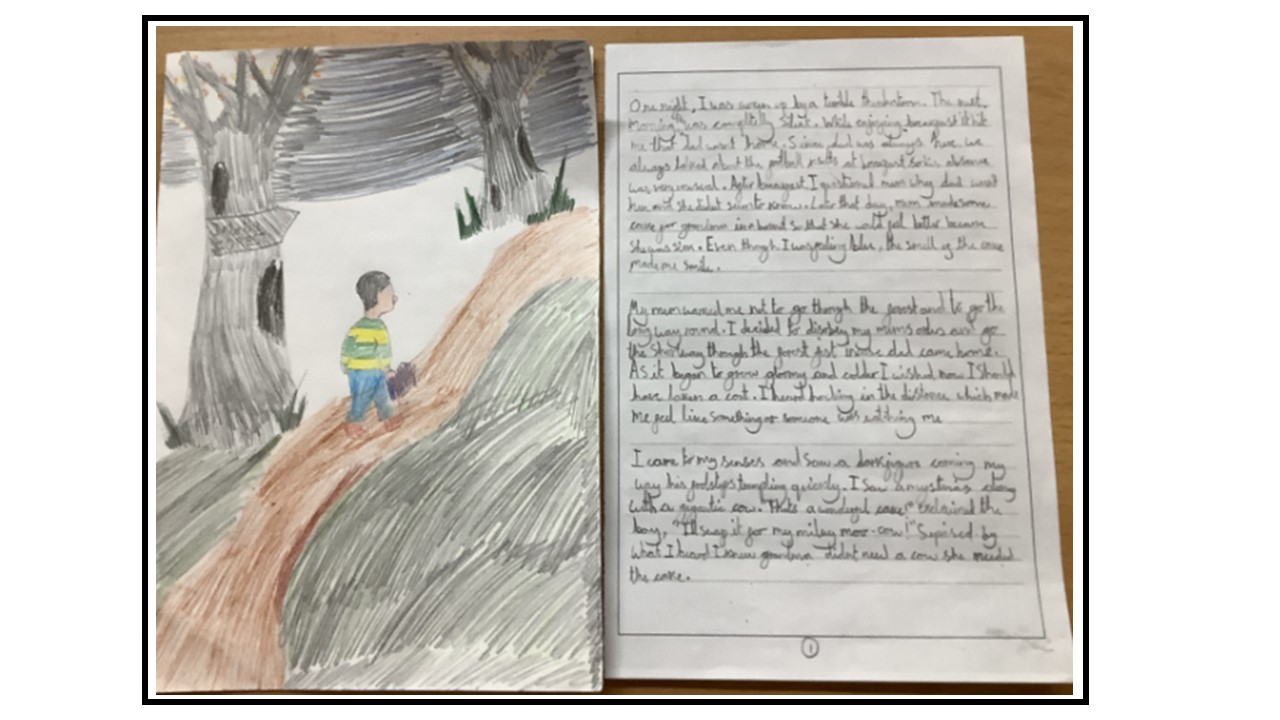 One night, I was awoken up by a terrible thunderstorm. The next
Morning, was completly silent. While enjoying breakfast it hit
me that Dad wasnt home. Since dad was always here we
always talked about the football results at breakfast so his absence
was very unusual. After breakfast, I questioned mum why dad wasnt
here and she didnt seem to know. Later that day, mum made some
cake for grandma in a so that she would feel better because
she was sick. Even though I was feeling blue, the smell of the cake
made me smile.
My mum warned me not to go though the forest and to go the
long way round. I decided to disobey my mums orders and go
the short way though the forest just incase dad came home.
As it began to grow gloomy and colder I wished now I should
have taken a coat. I heard howling in the distance which made
me feel like something or someone was watching me
I came to my senses and saw a dark figure coming my
way his footsteps trampling quickly. I saw a along
with a gigantic cow. "Thats a wonderful cake!" exclaimed the
boy, "I'll swap it for my milky moo-cow!" Suprised by
what I heard I knew grandma didnt need a cow she needed
the cake.
1